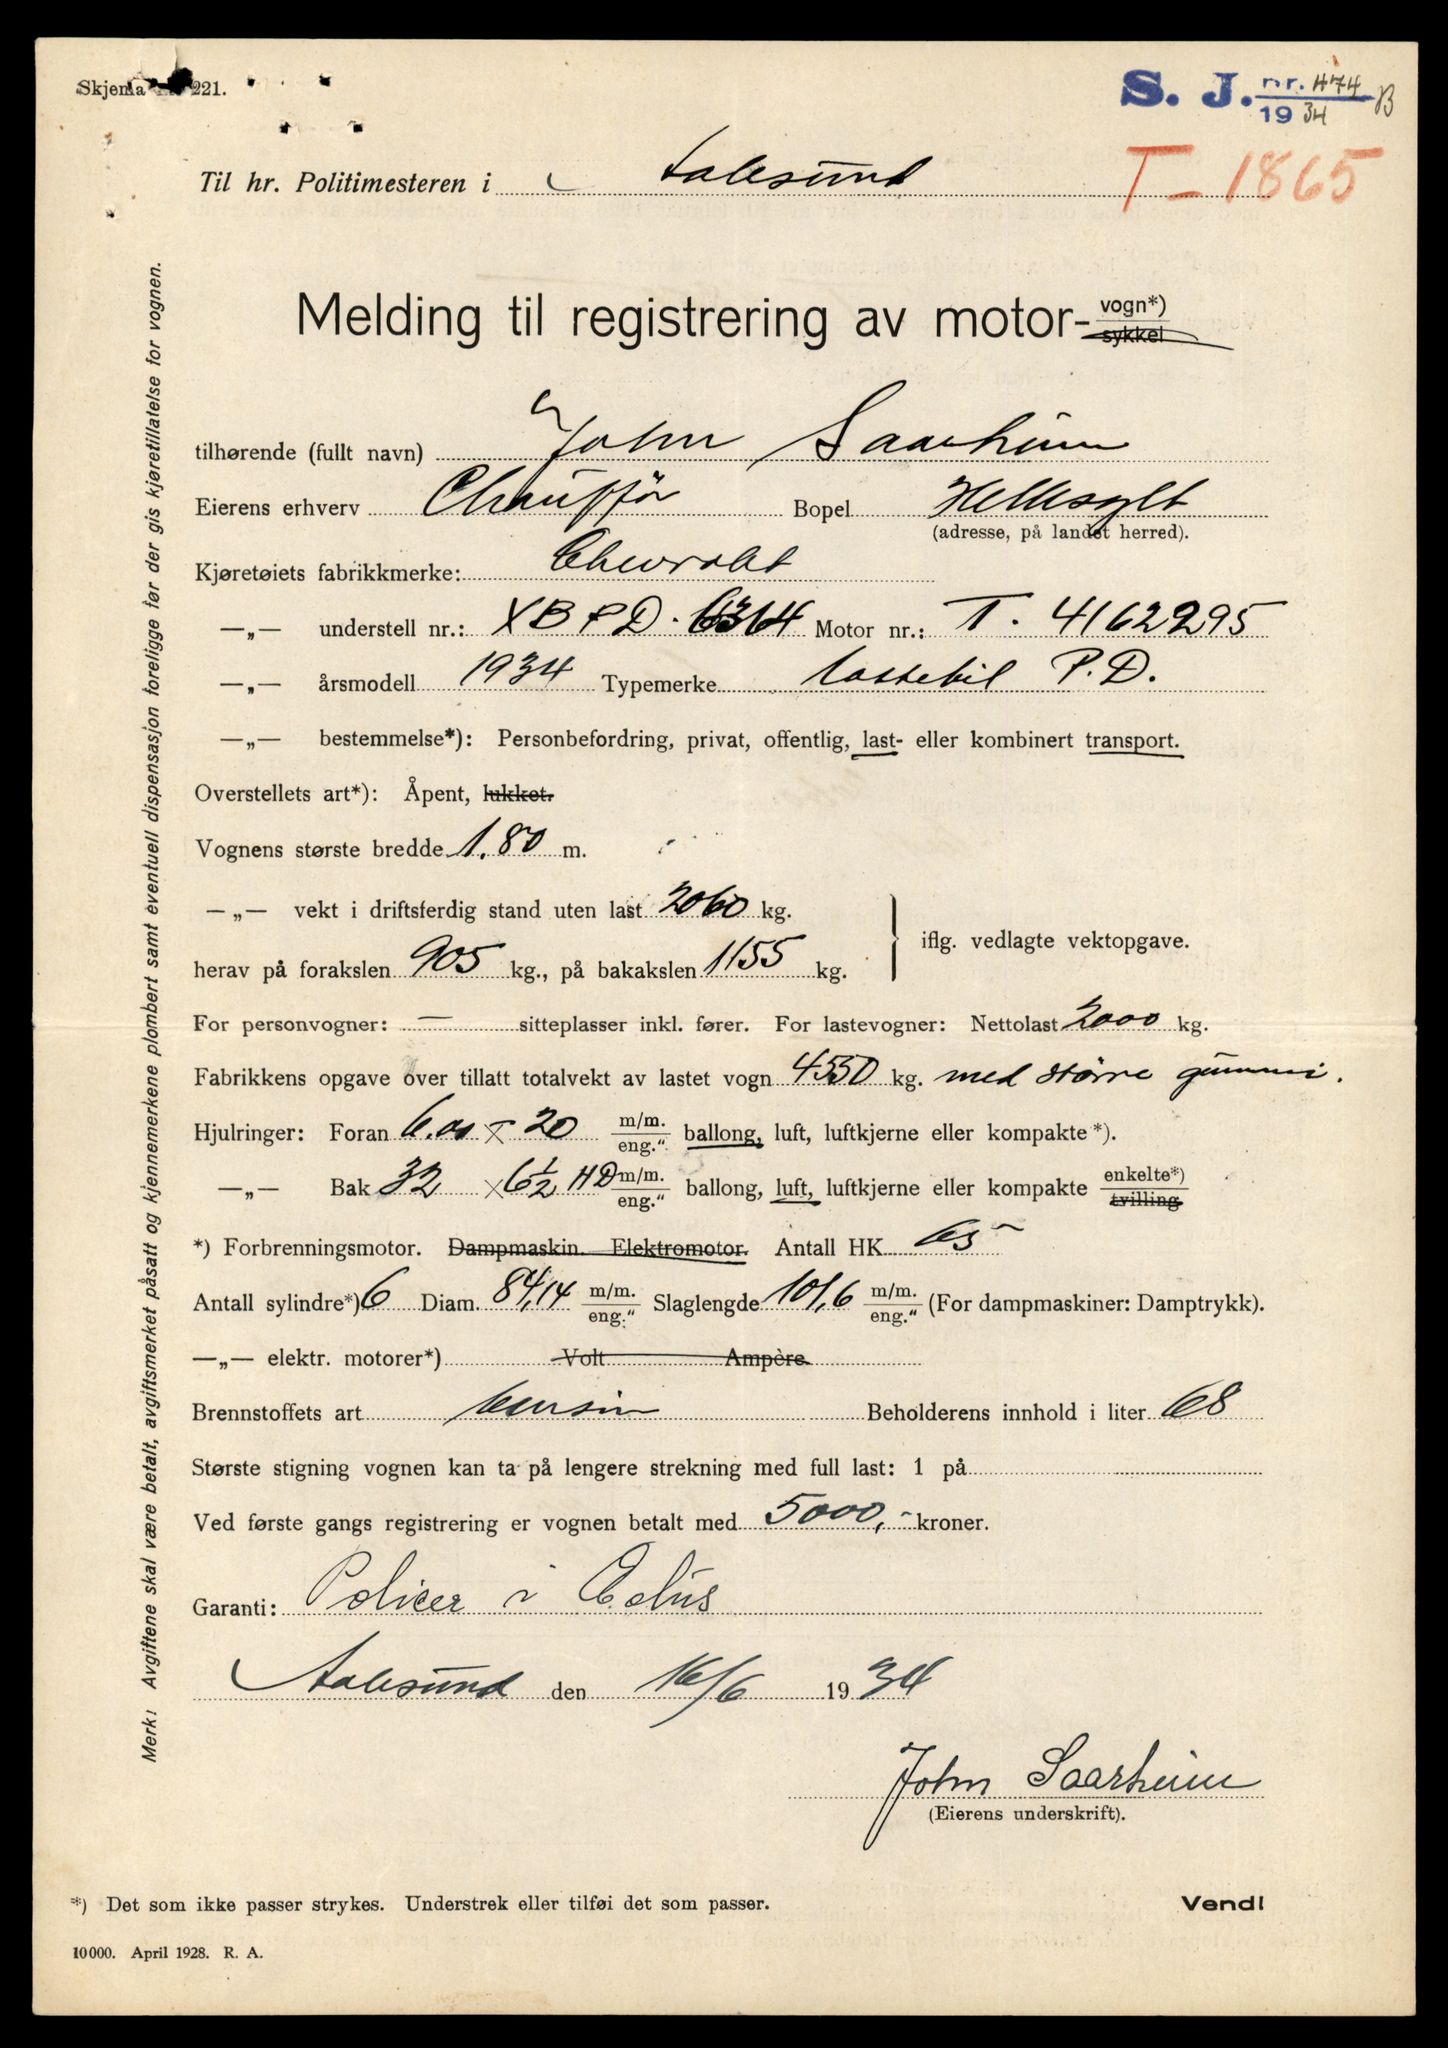 Skjema 221.
S. J. nr. 474 B
19 34
T-1865
Til hr. Politimesteren i Aalesund
Melding til registrering av motor- vogn*)
sykkel
tilhørende (fullt navn) John Saarheim
Eierens erhverv Chauffør Bopel Hellesylt
(adresse, på landet herred).
Kjøretøiets fabrikkmerke: Chevrolet
—„— understell nr.: XBPD. 6364 Motor nr.: T. 4162295
—„— årsmodell 1934 Typemerke Lastebil P.D.
—„— bestemmelse*): Personbefordring, privat, offentlig, last- eller kombinert transport.
Overstellets art*): Åpent, lukket.
Vognens største bredde 1.80 m.
—„— vekt i driftsferdig stand uten last 2060 kg.
herav på forakslen 905 kg., på bakakslen 1155 kg.
iflg. vedlagte vektopgave.
For personvogner: — sitteplasser inkl. fører. For lastevogner: Nettolast 2000 kg.
Fabrikkens opgave over tillatt totalvekt av lastet vogn 4550 kg. med større gummi.
Hjulringer: Foran 6.00 x 20 m/m. eng." ballong, luft, luftkjerne eller kompakte*).
—„— Bak 32 x 6½ HD m/m. eng." ballong, luft, luftkjerne eller kompakte enkelte*) tvilling
*) Forbrenningsmotor. Dampmaskin. Elektromotor. Antall HK 65
Antall sylindre*) 6 Diam. 84,14 m/m. eng." Slaglengde 101,6 m/m. eng." (For dampmaskiner: Damptrykk).
—„— elektr. motorer*) Volt Ampère.
Brennstoffets art bensin Beholderens innhold i liter 68
Største stigning vognen kan ta på lengere strekning med full last: 1 på
Ved første gangs registrering er vognen betalt med 5000,- kroner.
Garanti: Policer i Æolus
Aalesund den 16/6 1934
John Saarheim
(Eierens underskrift).
*) Det som ikke passer strykes. Understrek eller tilføi det som passer.
Vend!
10000. April 1928. R. A.
Merk: Avgiftene skal være betalt, avgiftsmerket påsatt og kjennemerkene plombert samt eventuell dispensasjon foreligge før der gis kjøretillatelse for vognen.